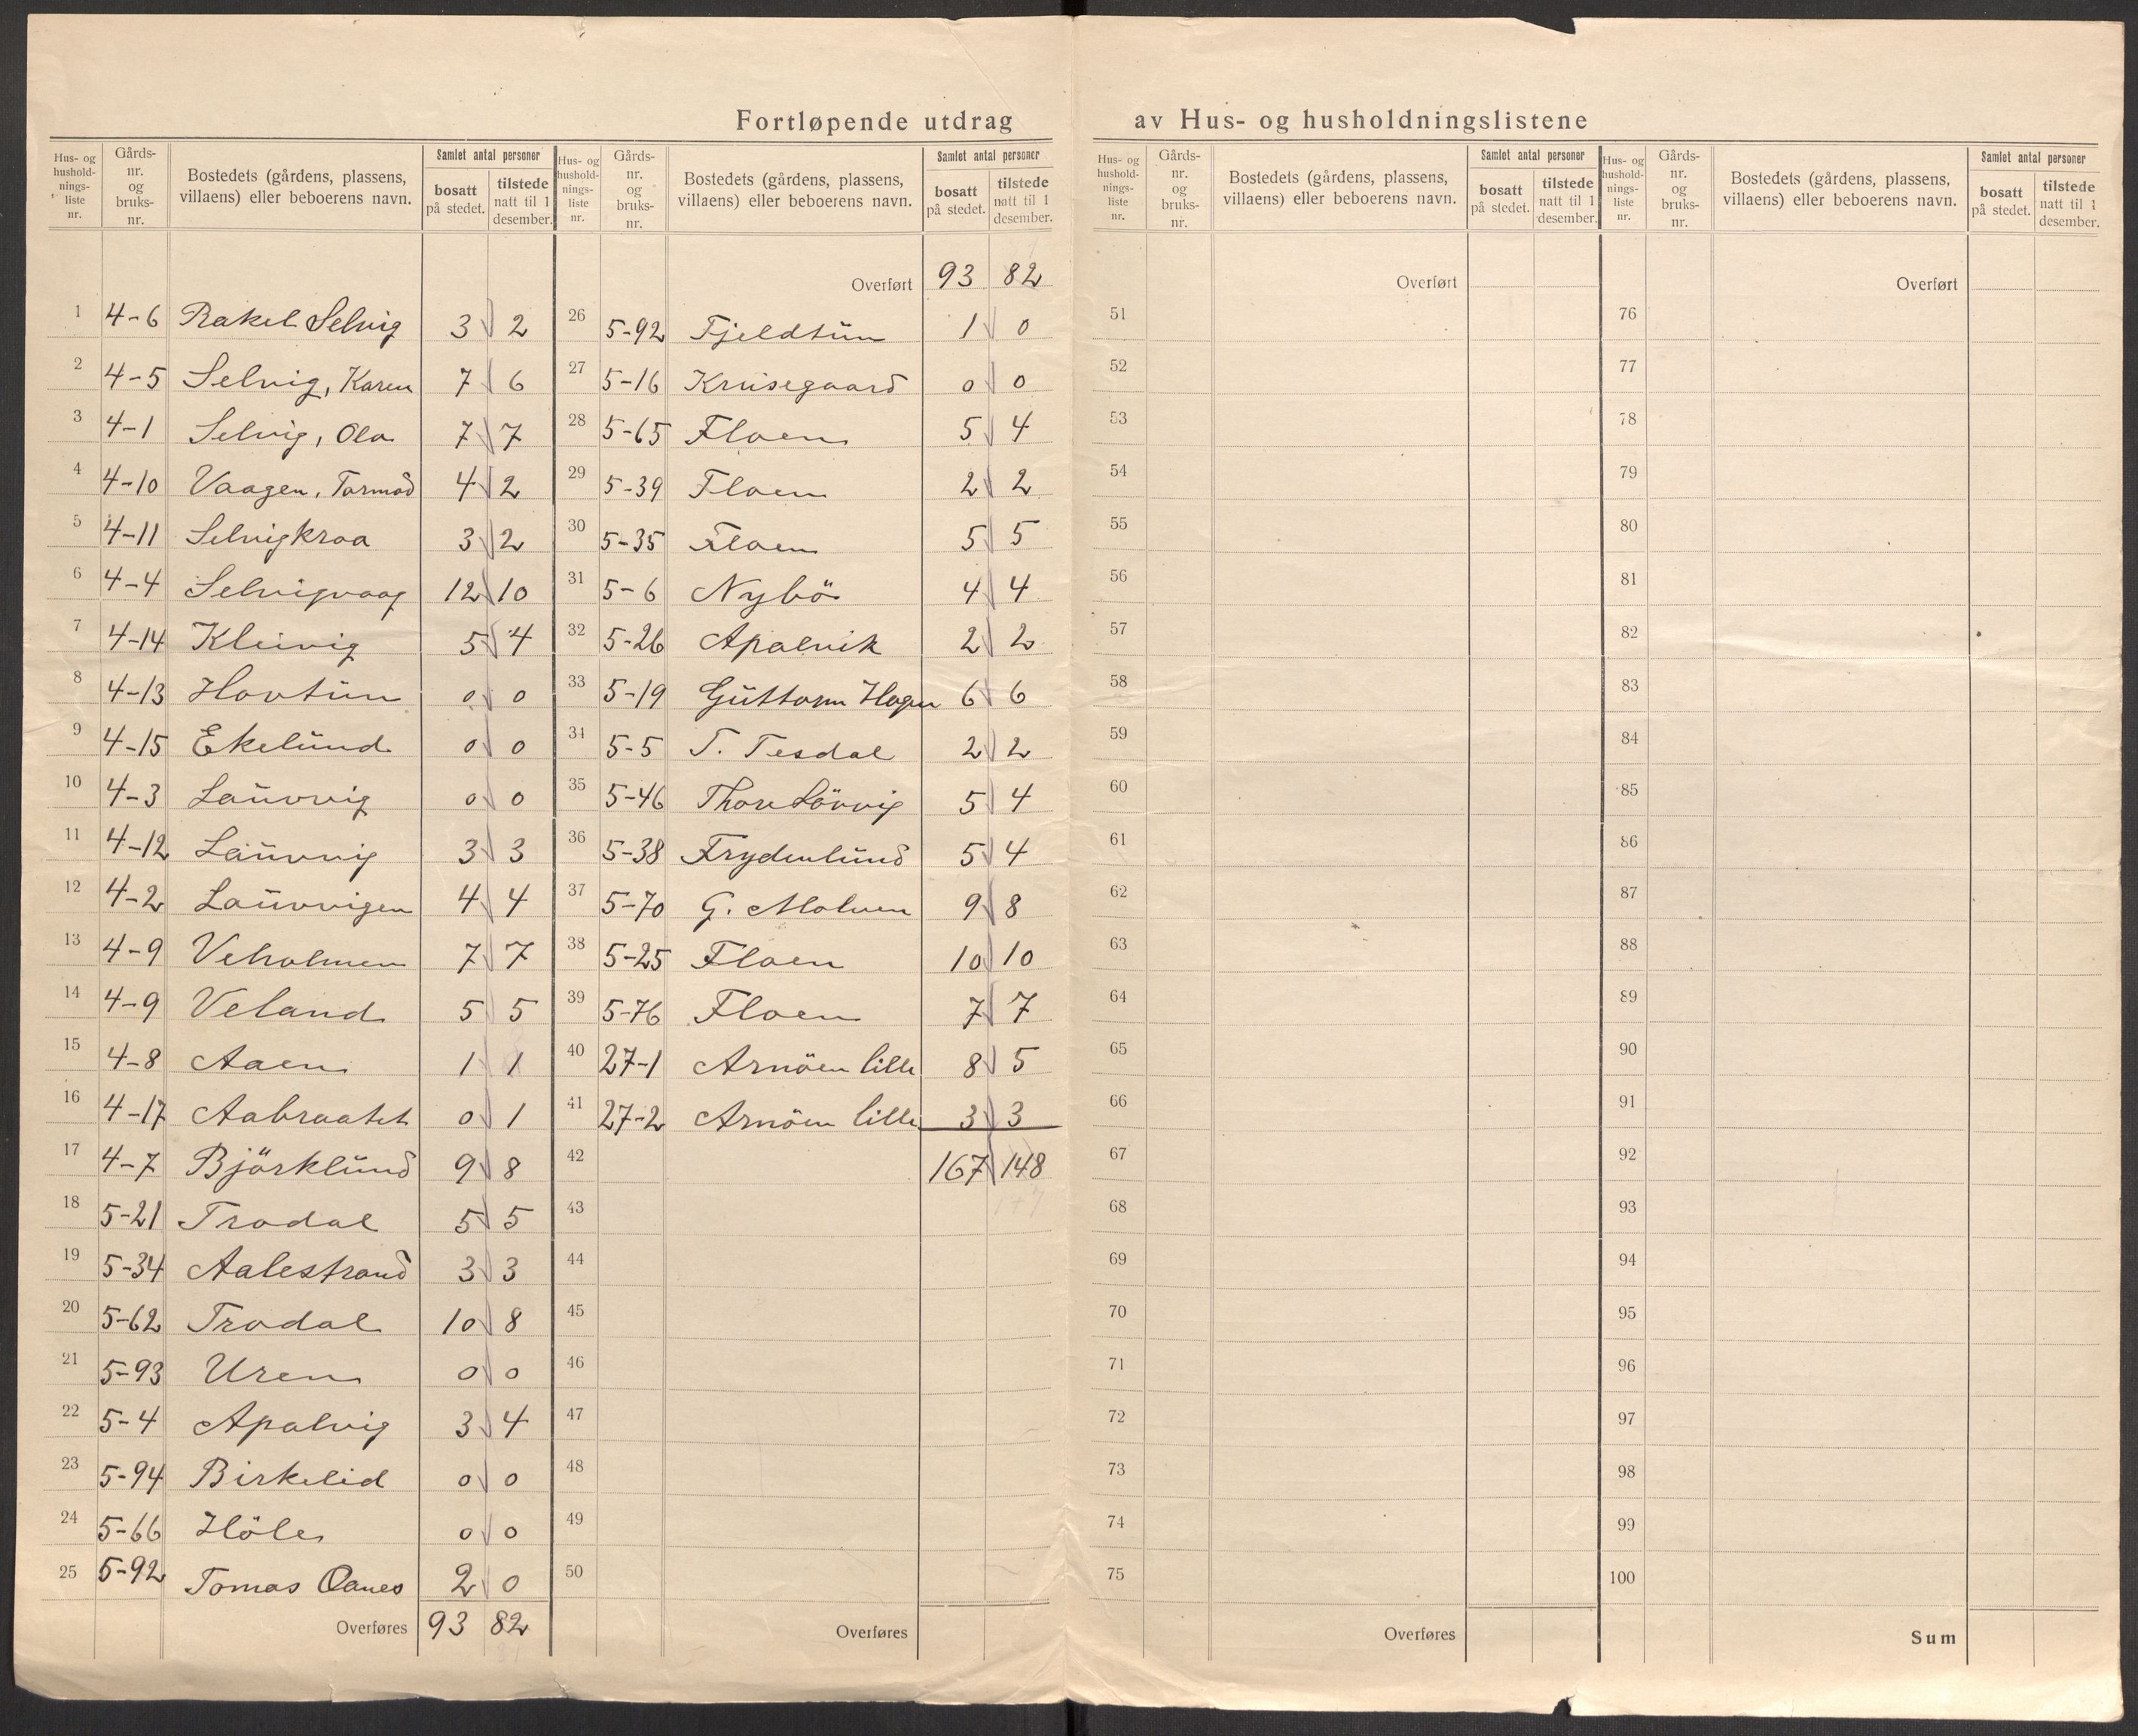 Fortløpende utdrag av Hus- og husholdningslistene
Hus- og hushold- nings- liste nr. Gårds- nr. og bruks- nr. Bostedets (gårdens, plassens, villaens) eller beboerens navn. Samlet antal personer bosatt på stedet. tilstede natt til 1 desember.
1 4-6 Rakel Selvig 3 2
2 4-5 Selvig, Karen 7 6
3 4-1 Selvig, Ola 7 7
4 4-10 Vaagen, Tormod 4 2
5 4-11 Selvigkraa 3 2
6 4-4 Selvigvaag 12 10
7 4-14 Kleivig 5 4
8 4-13 Hovtun 0 0
9 4-15 Ekelund 0 0
10 4-3 Lauvvig 0 0
11 4-12 Lauvvig 3 3
12 4-2 Lauvvigen 4 4
13 4-9 Veholmen 7 7
14 4-9 Veland 5 5
15 4-8 Aaen 1 1
16 4-17 Aabraatet 0 1
17 4-7 Björklund 9 8
18 5-21 Trodal 5 5
19 5-34 Aalestrand 3 3
20 5-62 Trodal 10 8
21 5-93 Uren 0 0
22 5-4 Apalvig 3 4
23 5-94 Birkelid 0 0
24 5-66 Höle 0 0
25 5-92 Tomas Oanes 2 0
Overføres 93 82
Hus- og hushold- nings- liste nr. Gårds- nr. og bruks- nr. Bostedets (gårdens, plassens, villaens) eller beboerens navn. Samlet antal personer bosatt på stedet. tilstede natt til 1 desember.
Overført 93 82
26 5-92 Fjeldtun 1 0
27 5-16 Krusegaard 0 0
28 5-65 Floen 5 4
29 5-39 Floen 2 2
30 5-35 Floen 5 5
31 5-6 Nybö 4 4
32 5-26 Apalvik 2 2
33 5-19 Guttorm Hagen 6 6
34 5-5 T. Tesdal 2 2
35 5-46 Thore Lövvig 5 4
36 5-38 Frydenlund 5 4
37 5-70 G. Molven 9 8
38 5-25 Floen 10 10
39 5-76 Floen 7 7
40 27-1 Arnöen lille 8 5
41 27-2 Arnöen lille 3 3
42 167 148
43
44
45
46
47
48
49
50
Overføres
Hus- og hushold- nings- liste nr. Gårds- nr. og bruks- nr. Bostedets (gårdens, plassens, villaens) eller beboerens navn. Samlet antal personer bosatt på stedet. tilstede natt til 1 desember.
Overført
51
52
53
54
55
56
57
58
59
60
61
62
63
64
65
66
67
68
69
70
71
72
73
74
75
Overføres
Hus- og hushold- nings- liste nr. Gårds- nr. og bruks- nr. Bostedets (gårdens, plassens, villaens) eller beboerens navn. Samlet antal personer bosatt på stedet. tilstede natt til 1 desember.
Overført
76
77
78
79
80
81
82
83
84
85
86
87
88
89
90
91
92
93
94
95
96
97
98
99
100
Sum